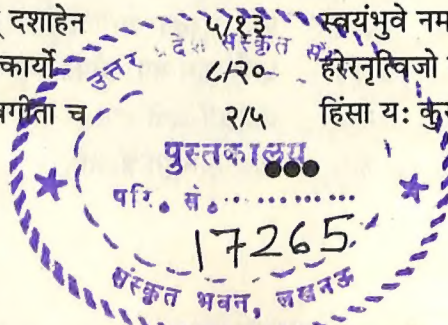 दशाहेन ५/१३ स्वयंभुवे नम
कार्यो ८/२० हरेरनृत्विजो
वगीता च २/५ हिंसा यः कु
उत्तर प्रदेश संस्कृत सं
पुस्तकालय
परि. सं. ............
17265
संस्कृत भवन, लखनऊ